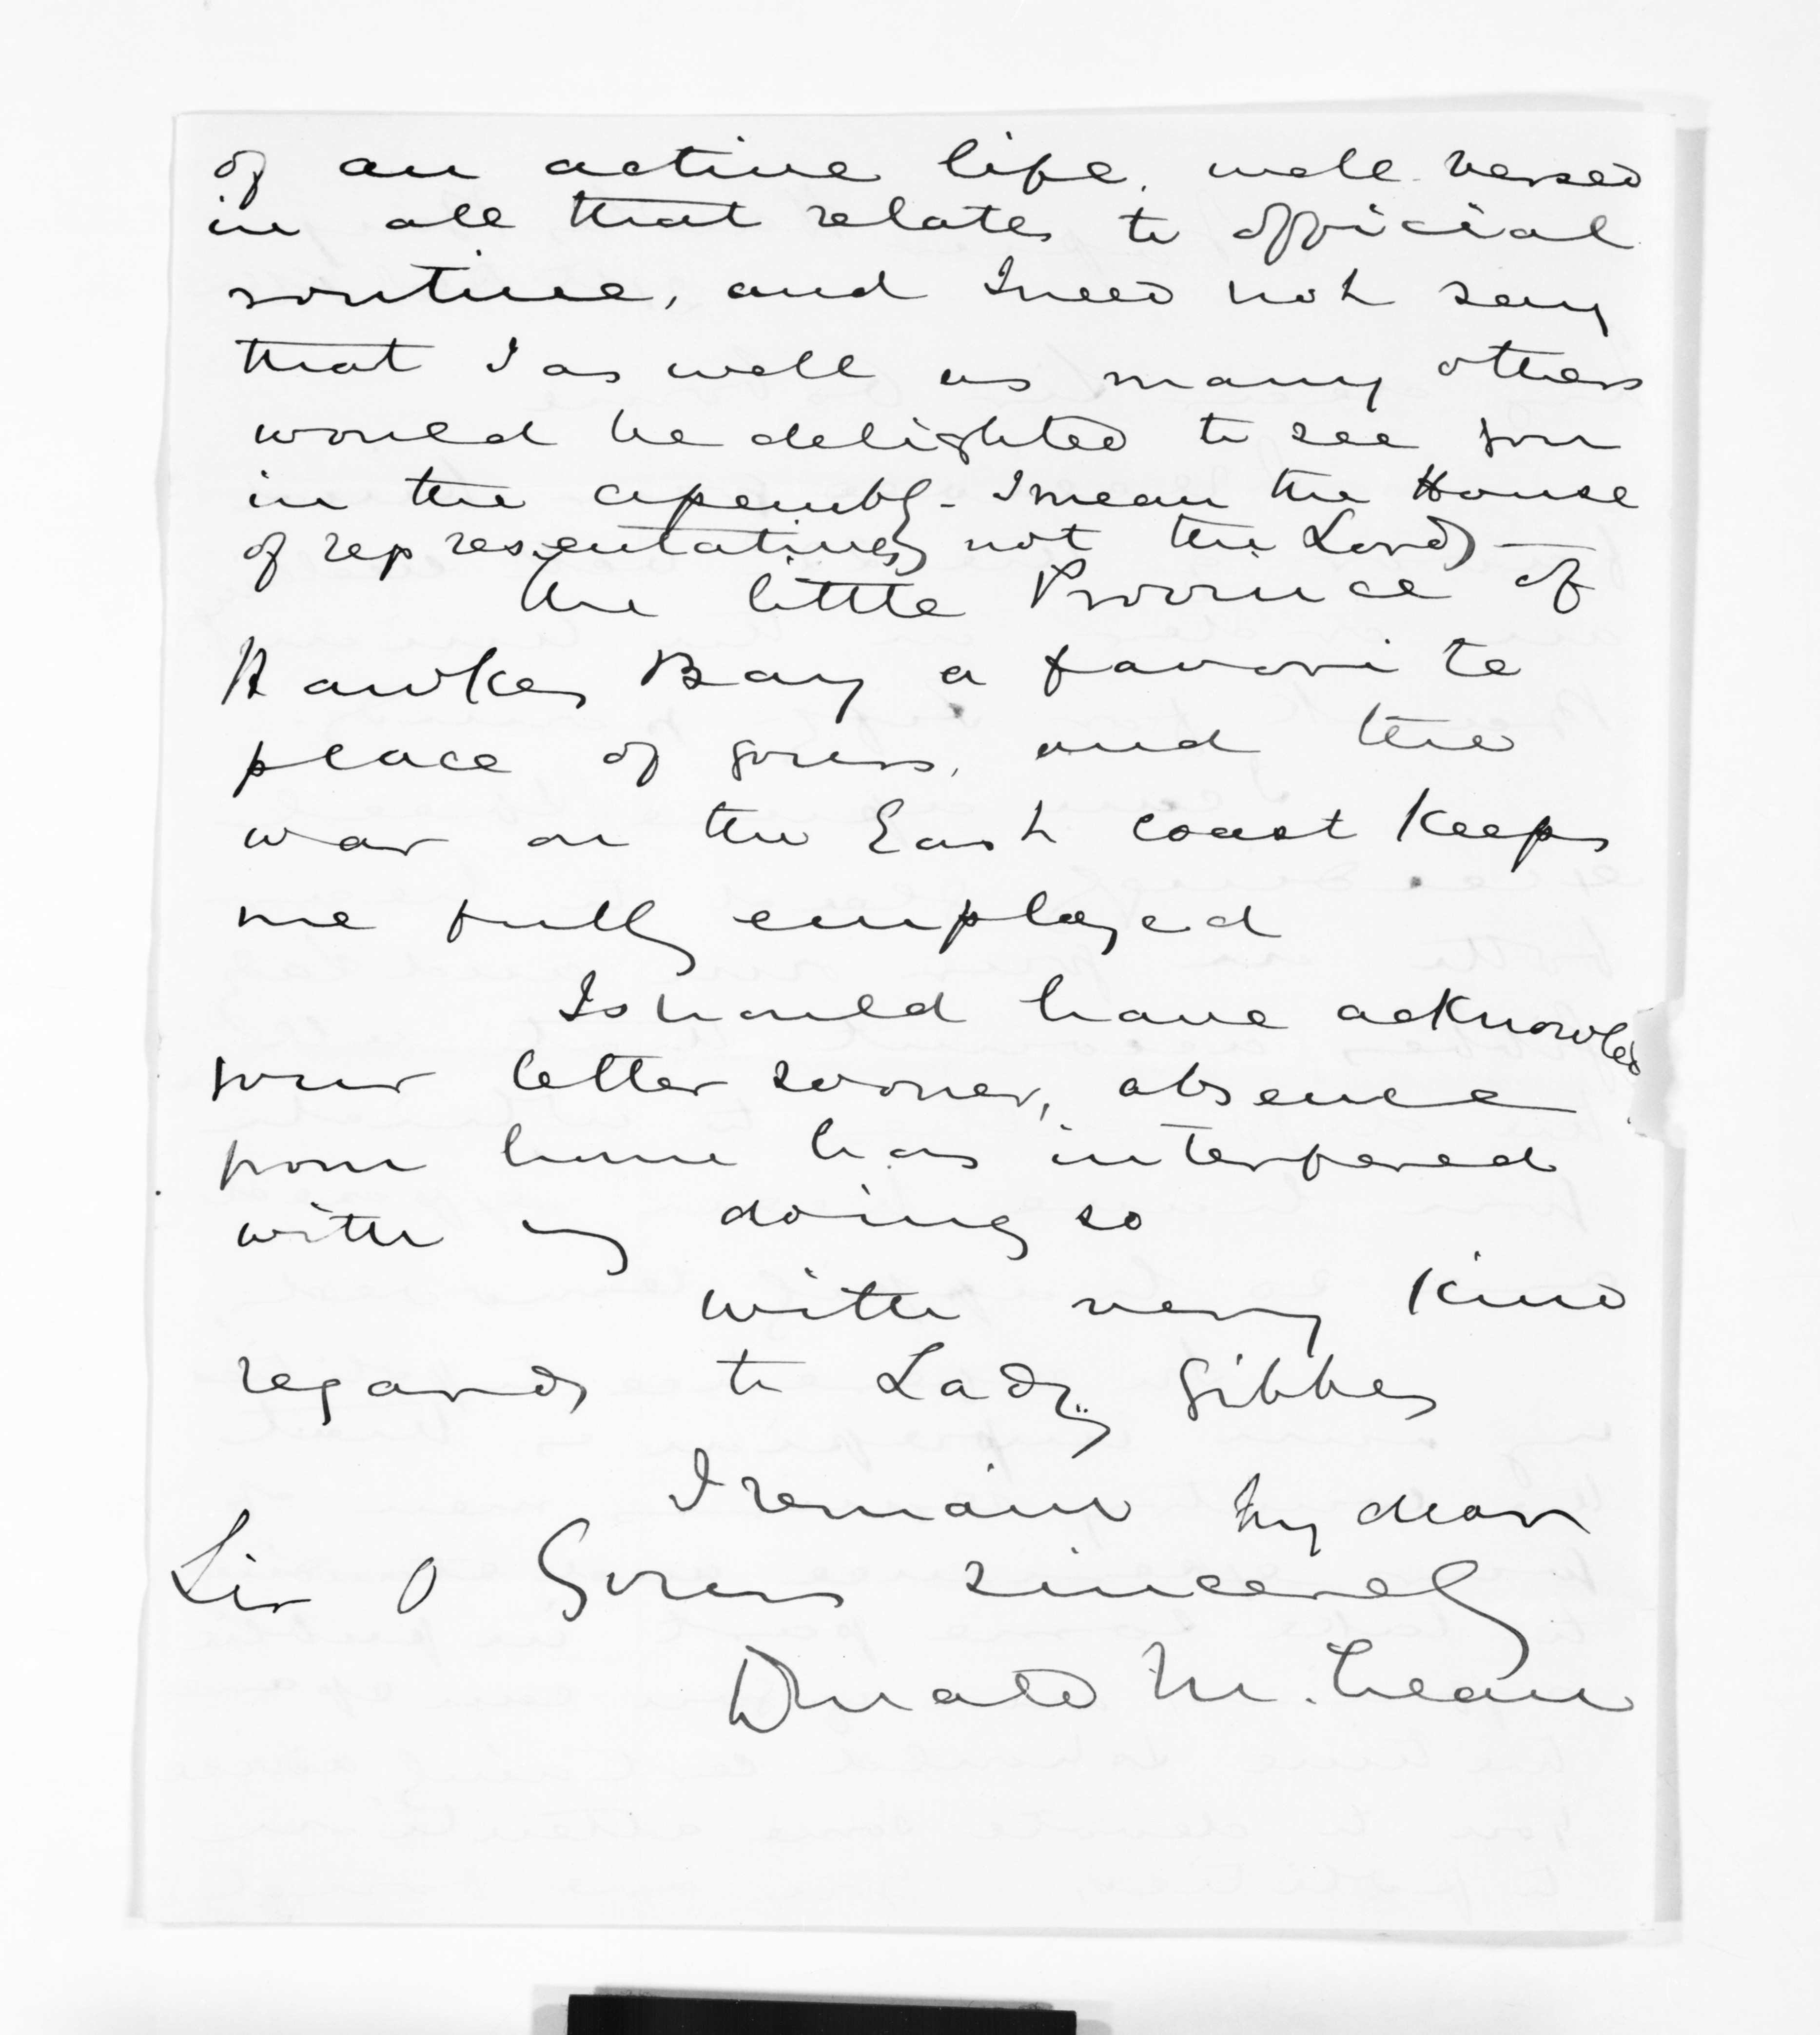 of an active life. well versed
in all that relates to official
routine, and I need not say
that I as well as many others
would be delighted to see you
in the assembly - I mean the House
of representatives, not the Lords —
the little Province of
Hawkes Bay a favorite
place of yours, and the
war on the East coast keeps
me fully employed
I should have acknowled
your letter sooner, absence
from home has interfered
with my doing so
with very kind
regards to Lady Gibbes
I remain My dear
Sir O Yours sincerely
Donald McLean